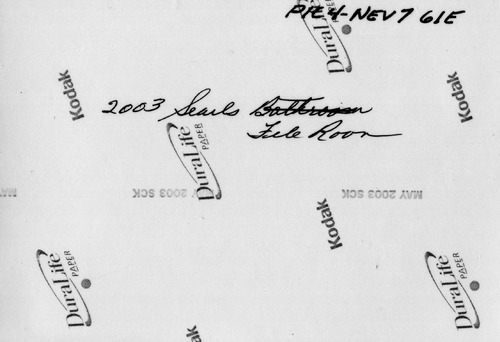 PIE 4-NEV 7 61E
DuraLife
PAPER
Kodak
Kodak
2003 Searls Bathroom
File Room
DuraLife
PAPER
MAY 2003 SCK
MAY 2003 SCK
Kodak
DuraLife
PAPER
DuraLife
PAPER
ak